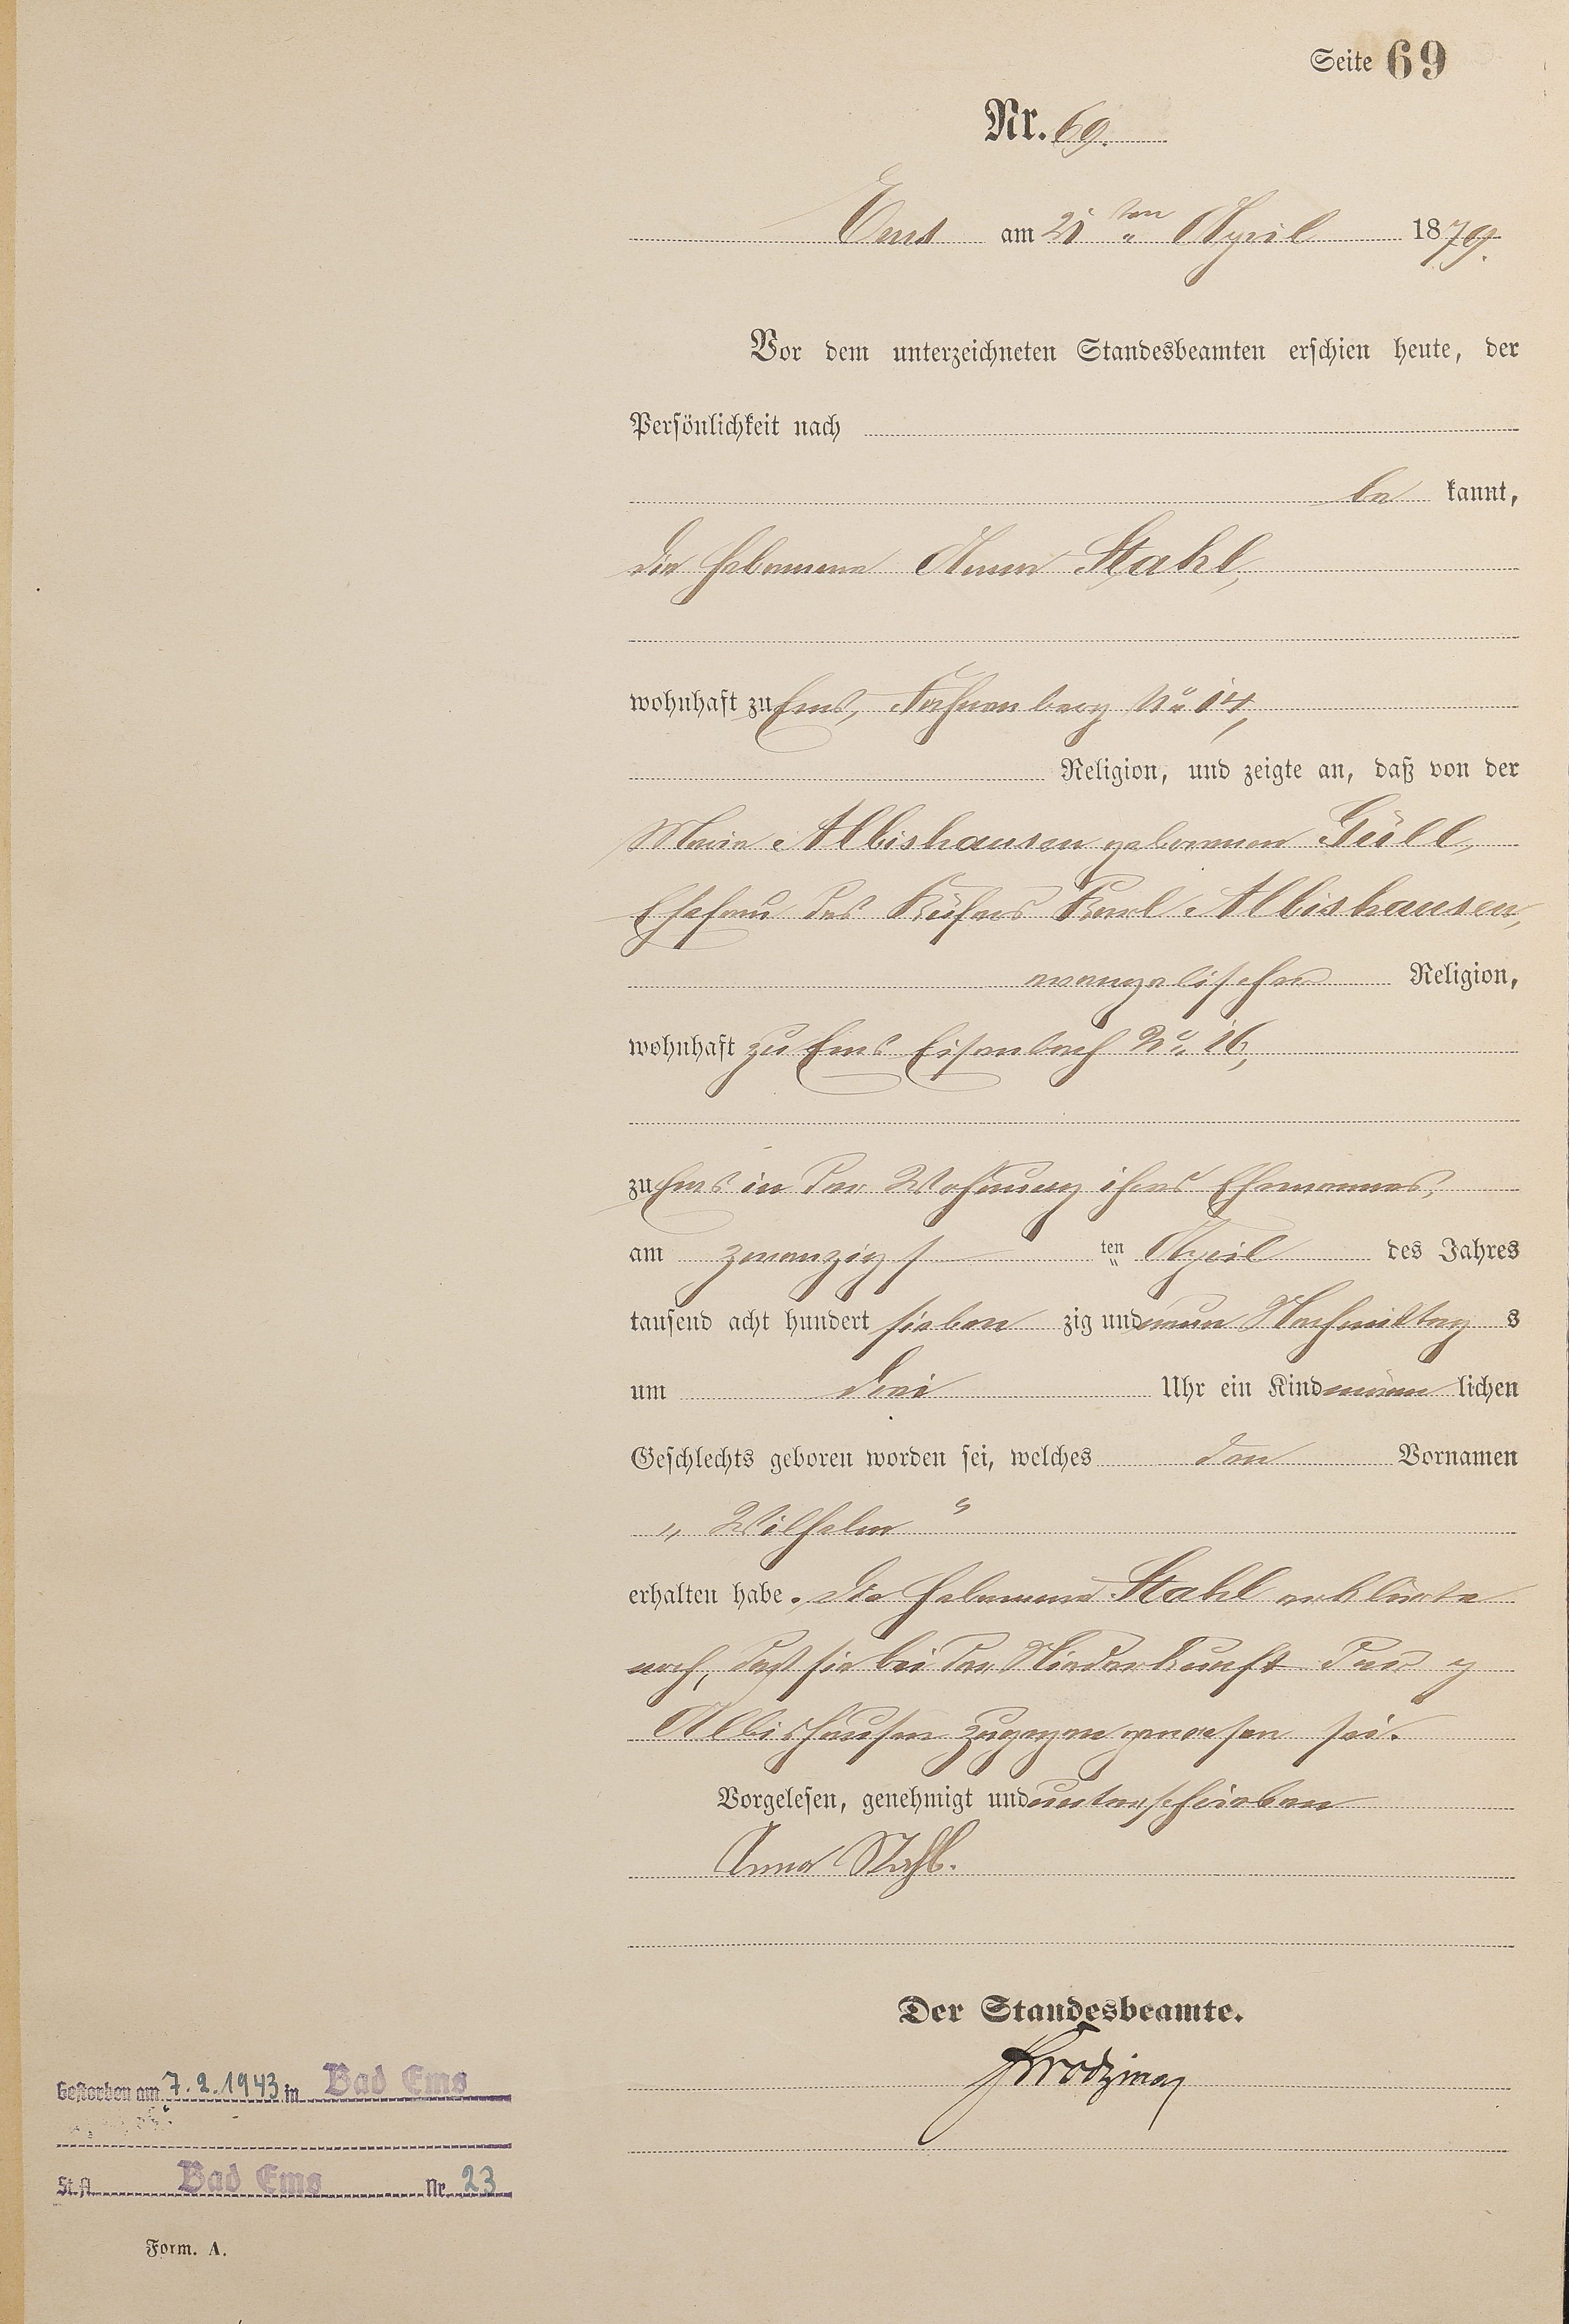 Seite 69
Nr. 69.
Ems am 21ten April 1879.
Vor dem unterzeichneten Standesbeamten erschien heute, der
Persönlichkeit nach
be kannt,
die Hebamme Anna Stahl,
wohnhaft zu Ems, No 14,
Religion, und zeigte an, daß von der
Marie Albishausen geborenen Güll,
Ehefrau des Küfers Karl Albishausen,
evangelischer Religion,
wohnhaft zu Ems Eisenbach No 16,
zu Ems in der Wohnung ihres Ehemannes,
am zwanzigs ten April des Jahres
tausend acht hundert sieben zig und neun Nachmittag s
um drei Uhr ein Kind männ lichen
Geschlechts geboren worden sei, welches den Vornamen
„Wilhelm“
erhalten habe. Die Hebamme Stahl erklärte
noch, daß sie bei der Niederkunft der
Albishausen zugegen gewesen sei.
Vorgelesen, genehmigt und unterschrieben
Anna Stahl.
Der Standesbeamte.
Gestorben am 7.2.1943 in Bad Ems
St.A. Bad Ems Nr. 23
Form. A.